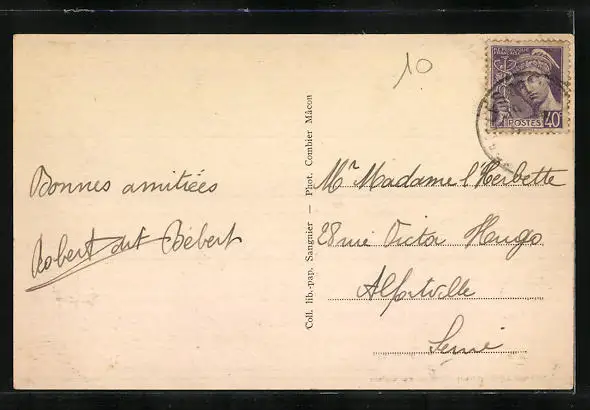 10
REPUBLIQUE
FRANÇAISE
POSTES 40
Bonnes amitiées
Robert dit Bébert
Coll. lib.-pap. Sangnier — Phot. Combier Mâcon
Mr Madame l'Herbette
28 rue Victor Hugo
Alfortville
Seine